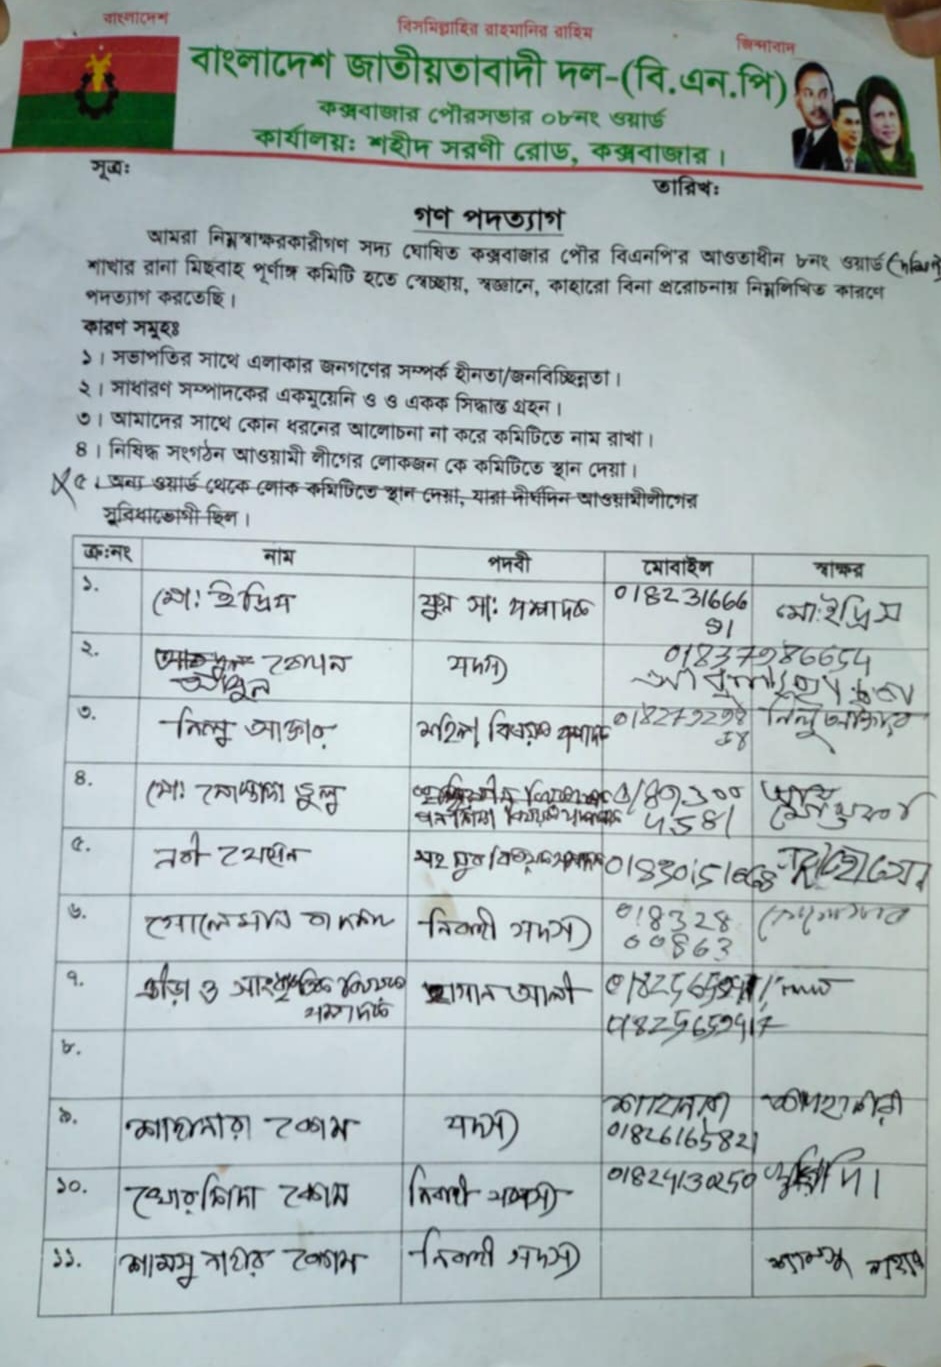 বাংলাদেশ
বিসমিল্লাহির রাহমানির রাহিম
জিন্দাবাদ
বাংলাদেশ জাতীয়তাবাদী দল-(বি.এন.পি)
কক্সবাজার পৌরসভার ০৮নং ওয়ার্ড
কার্যালয়ঃ শহীদ সরণী রোড, কক্সবাজার।
সূত্রঃ
তারিখঃ
গণ পদত্যাগ
আমরা নিম্নস্বাক্ষরকারীগণ সদ্য ঘোষিত কক্সবাজার পৌর বিএনপি'র আওতাধীন ৮নং ওয়ার্ড
শাখার রানা মিছবাহ পূর্ণাঙ্গ কমিটি হতে স্বেচ্ছায়, স্বজ্ঞানে, কাহারো বিনা প্ররোচনায় নিম্নলিখিত কারণে
পদত্যাগ করতেছি।
কারণ সমূহঃ
১। সভাপতির সাথে এলাকার জনগণের সম্পর্ক হীনতা/জনবিচ্ছিন্নতা।
২। সাধারণ সম্পাদকের একমুয়েনি ও ও একক সিদ্ধান্ত গ্রহন।
৩। আমাদের সাথে কোন ধরনের আলোচনা না করে কমিটিতে নাম রাখা।
৪। নিষিদ্ধ সংগঠন আওয়ামী লীগের লোকজন কে কমিটিতে স্থান দেয়া।
৫। অন্য ওয়ার্ড থেকে লোক কমিটিতে স্থান দেয়া, যারা দীর্ঘদিন আওয়ামীলীগের
সুবিধাভোগী ছিল।
ক্র:নং নাম পদবী মোবাইল স্বাক্ষর
১. মো: ইদ্রিস যুগ্ম সা: সম্পাদক 018231666 মো:ইদ্রিস
91
২. বেগম সদস্য
৩. নিলু আক্তার মহিলা বিষয়ক সম্পাদক নিলু আক্তার
৪. মো:
৫. নবী হোসেন
৬. সোলেমান বাদশা নির্বাহী সদস্য 018328
00863
৭. ক্রীড়া ও সাংস্কৃতিক বিষয়ক হাসান আলী
সম্পাদক 01825659417
৮.
৯. শাহানারা বেগম সদস্য 01826165821
১০. খোরশিদা বেগম নির্বাহী সদস্য 01824130250
১১. শামসু নাহার বেগম নির্বাহী সদস্য শামসু নাহার